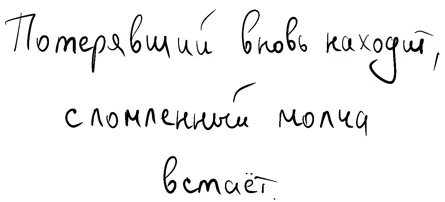 Потерявший вновь находит,
сломленный молча
встаёт.